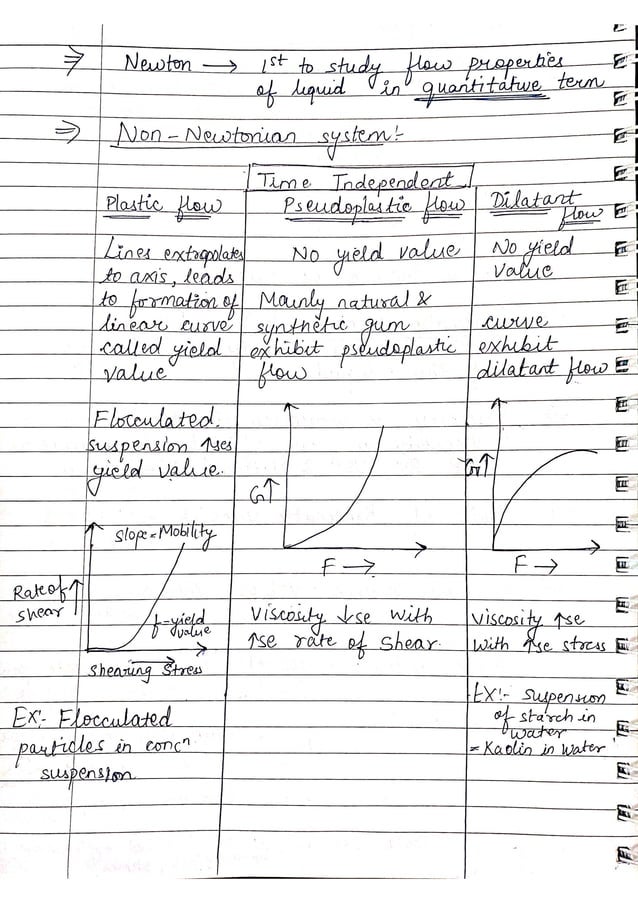 ⇒ Newton → 1st to study flow properties
of liquid in quantitative term
⇒ Non-Newtonian system:-
Time Independent
Plastic flow
Lines extrapolates
to axis, leads
to formation of
linear curve
called yield
value
Flocculated
suspension ↑ses
yield value.
Slope = Mobility
Rate of ↑
shear
f-yield
value
Shearing Stress
Ex:- Flocculated
particles in concⁿ
suspension
Pseudoplastic flow
No yield value
Mainly natural &
synthetic gum
exhibit pseudoplastic
flow
G↑
F →
Viscosity ↓se with
↑se rate of shear.
Dilatant
flow
No yield
value
curve
exhibit
dilatant flow
G↑
F →
Viscosity ↑se
with ↑se stress
Ex:- suspension
of starch in
water
= Kaolin in water